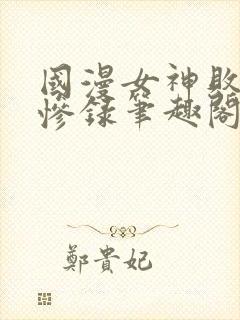 國漫女神敗
慘錄筆趣閣
鄭貴妃